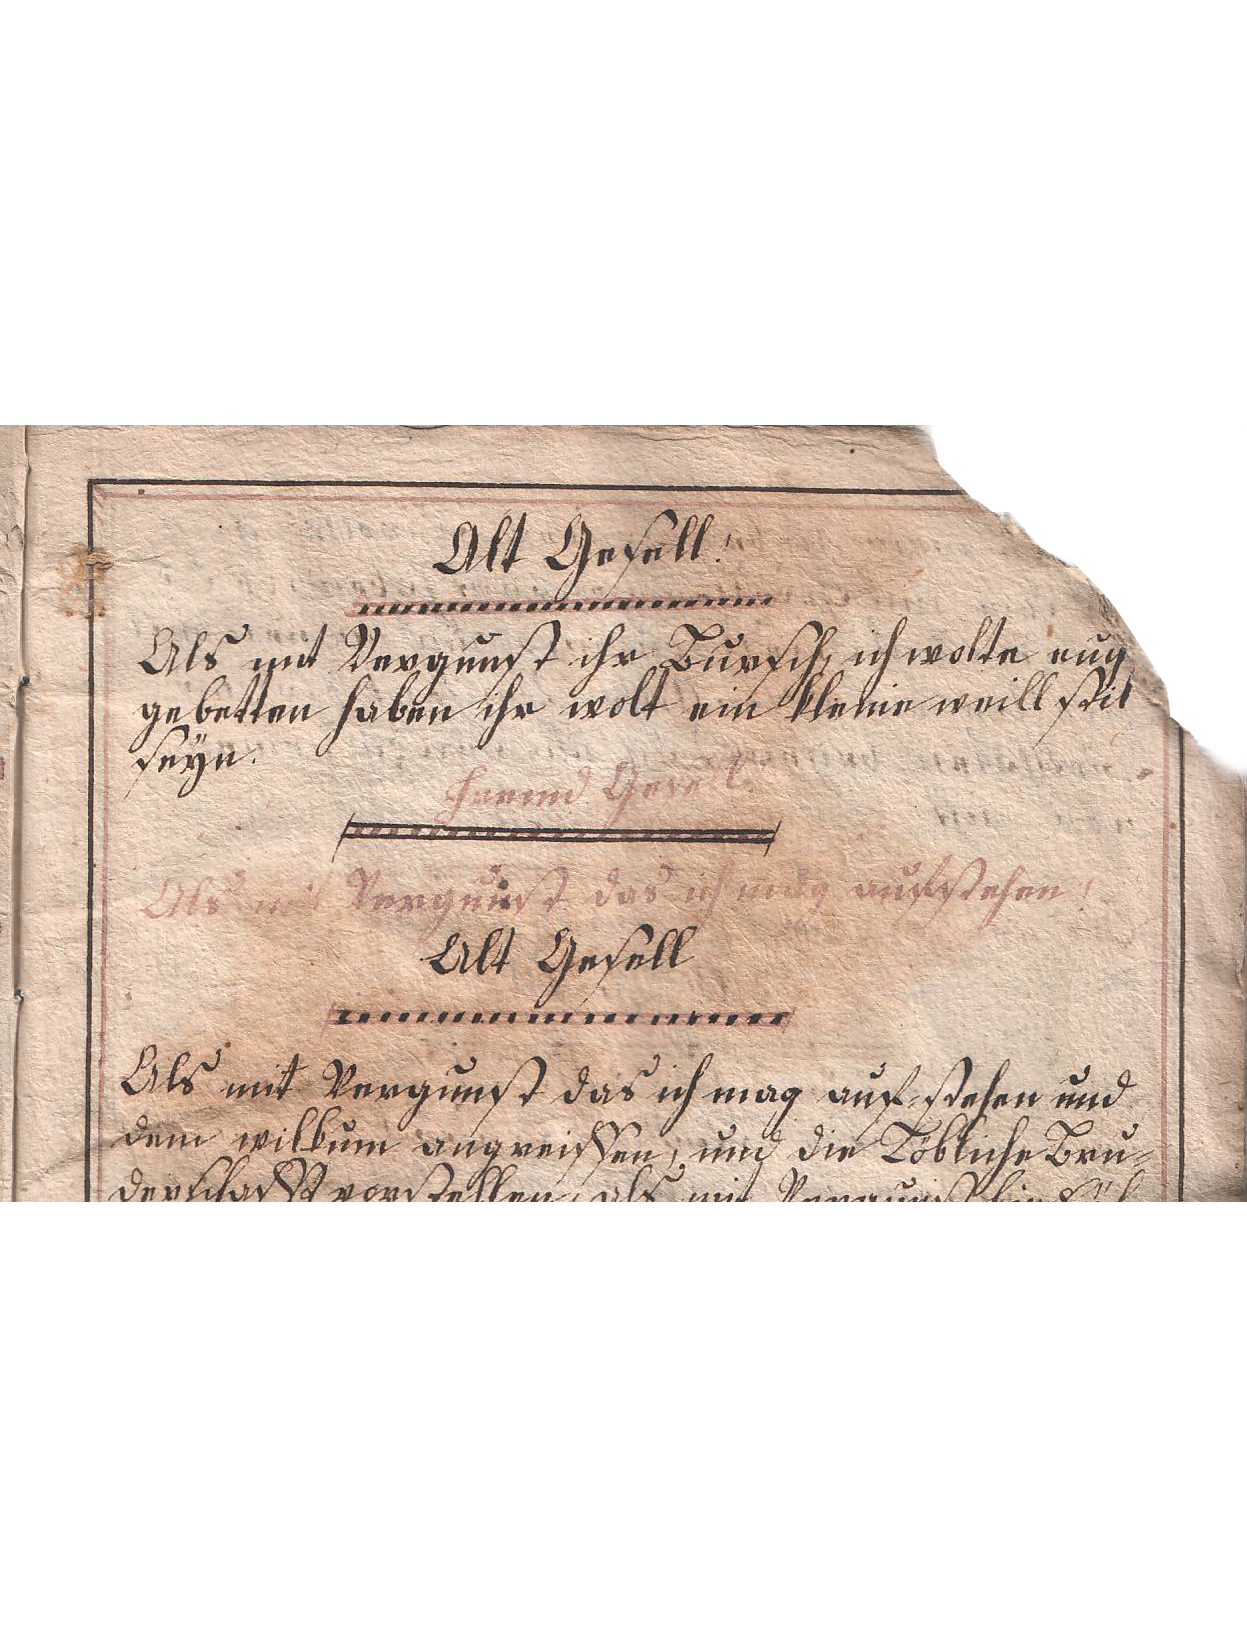 Alt Gesell!
Als mit Vergunst ihr Bursch, ich wolte eug
gebetten haben ihr wolt ein kleine weill stil
seyn.
fremd Gesell
Als mit Vergunst das ich mag aufstehen!
Alt Gesell
Als mit Vergunst das ich mag auf stehen und
dem wilkum angreiffen, und die Löbliche Bru-
derschafft vorstellen, als mit Vergunst